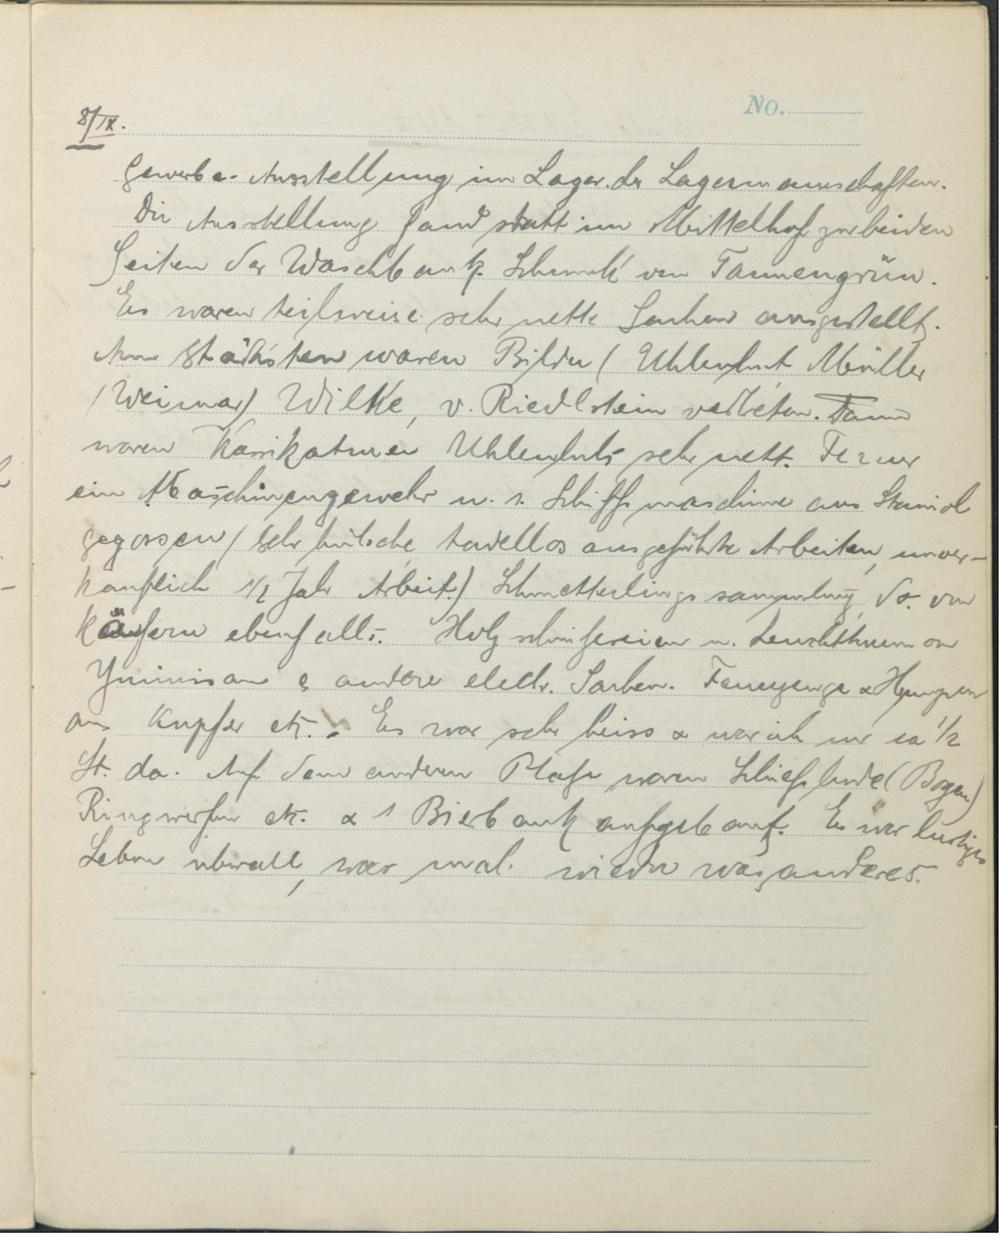 No.
8/IX.
Gewerbe-Ausstellung im Lager der Lagermannschaften.
Die Ausstellung fand statt im Mittelhof zu beiden
Seiten der Waschbank. Schmuck von Tannengrün.
Es waren teilweise sehr nette Sachen ausgestellt.
Am stärksten waren Bilder (Uhlenhut Müller
(Weimar) Wilke, v. Riedlstein vertreten. Dann
waren Karrikaturen Uhlenhuts sehr nett. Ferner
ein Maschinengewehr u. 1 Schiffsmaschine aus Staniol
gegossen (sehr hübsche, tadellos ausgeführte Arbeiten, unver-
käuflich 1/2 Jahr Arbeit.) Schmetterlingssammlung, do. von
Käfern ebenfalls. Holzschnitzereien u. Leuchtturm von
& andere elektr. Sachen.
aus Kupfer etc. Es war sehr heiss & war ich nur ca 1/2
St. da. Auf dem anderen Platze waren Schiessbude (Bogen)
Ringwerfen etc. & 1 Bierbank aufgebaut. Es war lustiges
Leben überall, war mal wieder was anderes.